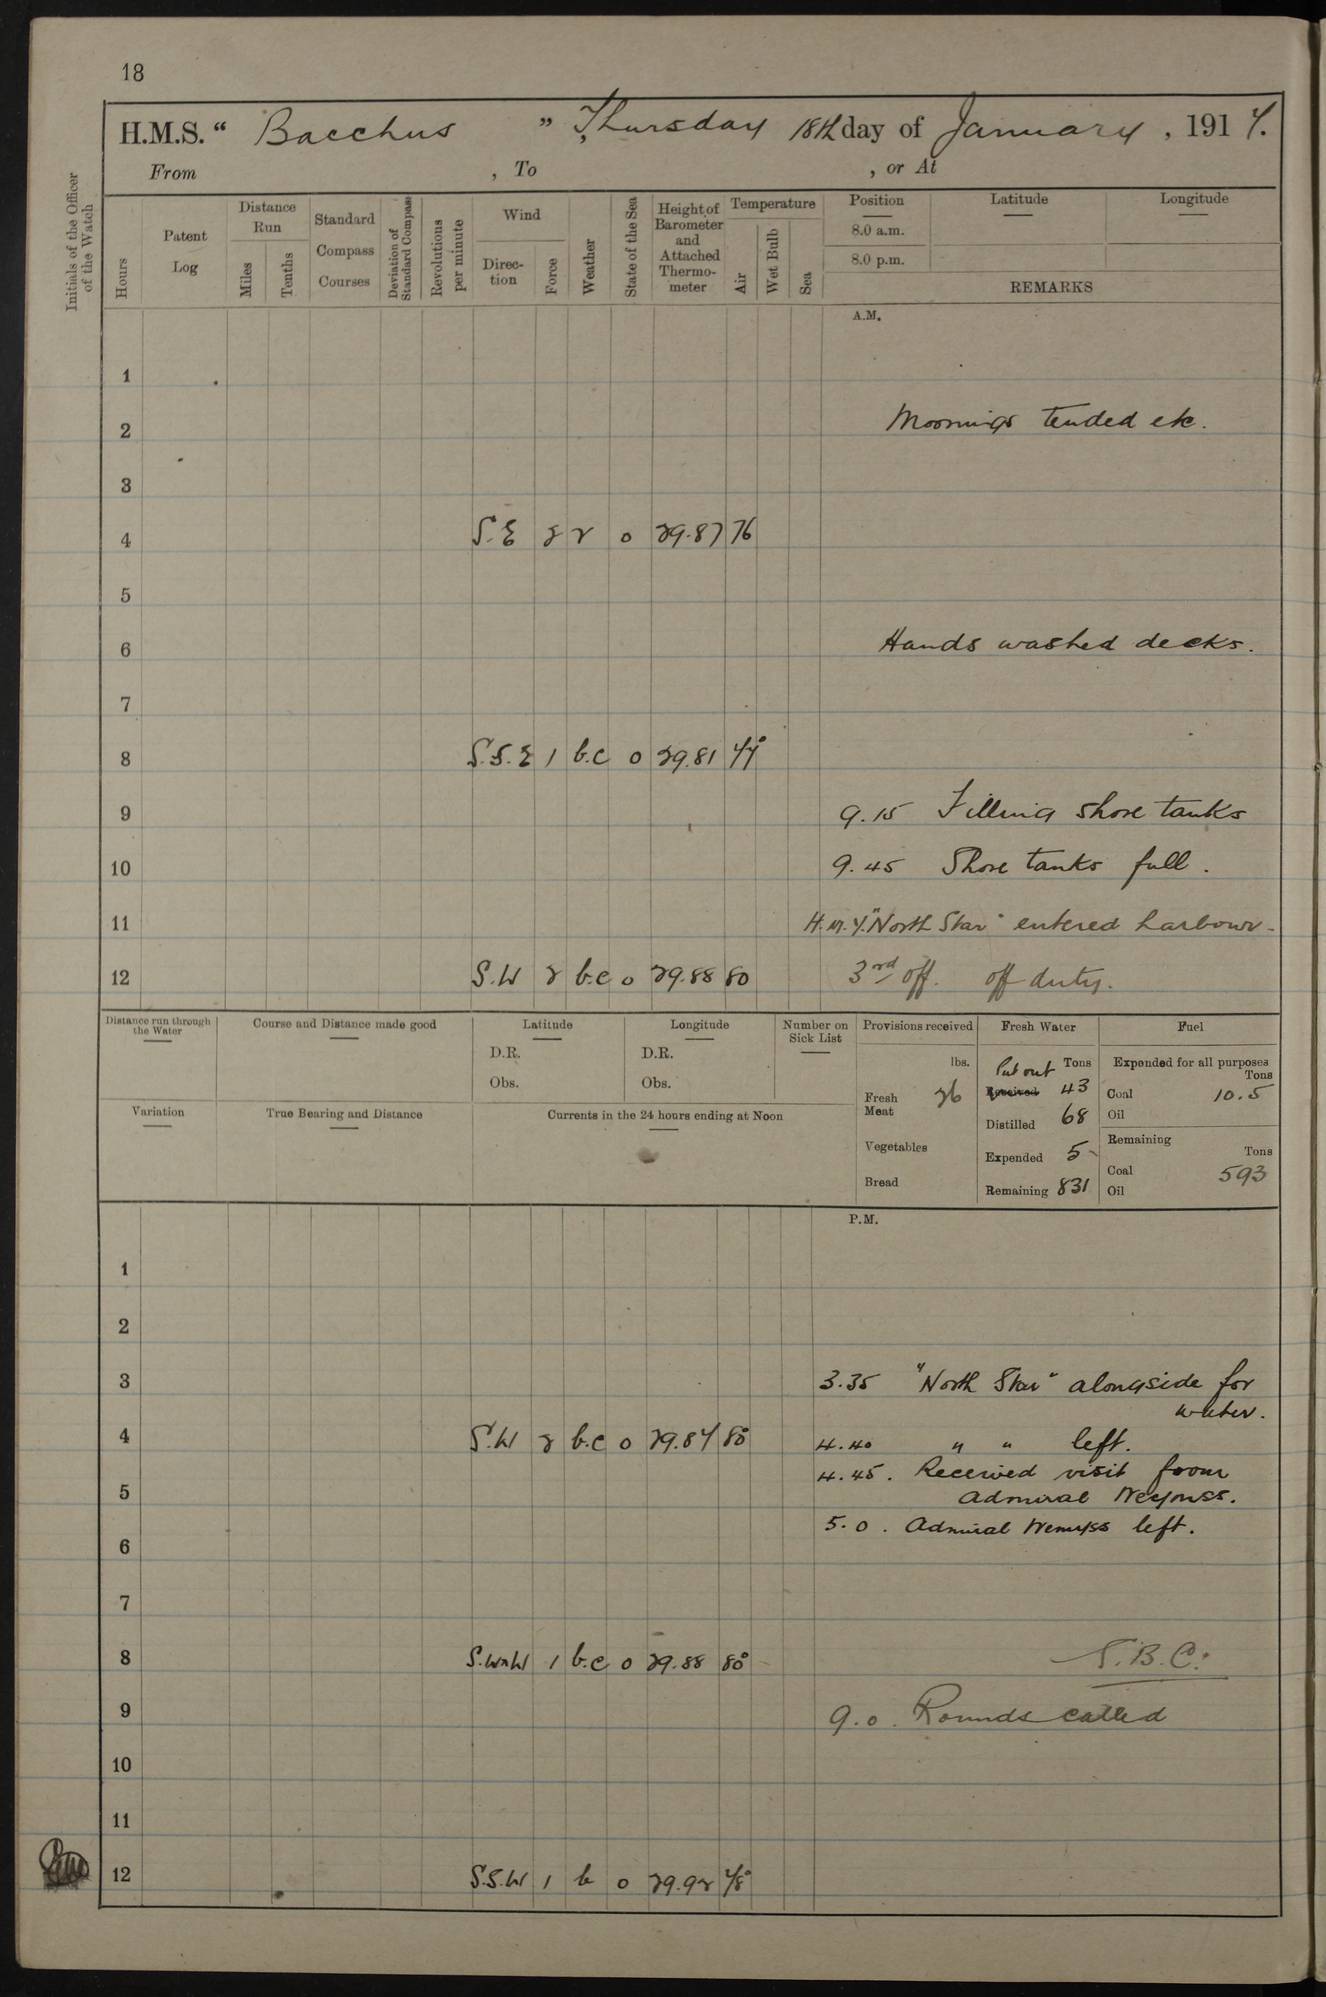 18
H.M.S. “ Bacchus ” Thursday 18th day of January, 1917.
From , To , or At
Initials of the Officer of the Watch
Hours
Patent Log
Distance Run
Miles
Tenths
Standard Compass Courses
Deviation of Standard Compass
Revolutions per minute
Wind
Direction
Force
Weather
State of the Sea
Height of Barometer and Attached Thermometer
Temperature
Air
Wet Bulb
Sea
Position
8.0 a.m.
8.0 p.m.
Latitude
Longitude
REMARKS
A.M.
1
2 Moorings tended etc.
3
4 S.E 2 r o 29.87 76
5
6 Hands washed decks.
7
8 S.S.E 1 b.c o 29.81 77°
9 9.15 Filling shore tanks
10 9.45 Shore tanks full.
11 H.M.Y. "North Star" entered harbour.
12 S.W 2 b.c o 29.88 80 3rd off. off duty.
Distance run through the Water
Course and Distance made good
Latitude
D.R.
Obs.
Longitude
D.R.
Obs.
Number on Sick List
Variation
True Bearing and Distance
Currents in the 24 hours ending at Noon
Provisions received
lbs.
Fresh Meat 26
Vegetables
Bread
Fresh Water
Tons
Put out
Received 43
Distilled 68
Expended 5
Remaining 831
Fuel
Expended for all purposes
Tons
Coal 10.5
Oil
Remaining
Tons
Coal 593
Oil
P.M.
1
2
3 3.35 "North Star" alongside for
water.
4 S.W 2 b.c o 29.87 80° 4.40 " " left.
4.45. Received visit from
5 Admiral Weymss.
5.0. Admiral Wemyss left.
6
7
8 1 b.c o 29.88 80°
9 9.0. Rounds called
10
11
12 S.S.W 1 b o 29.92 78°